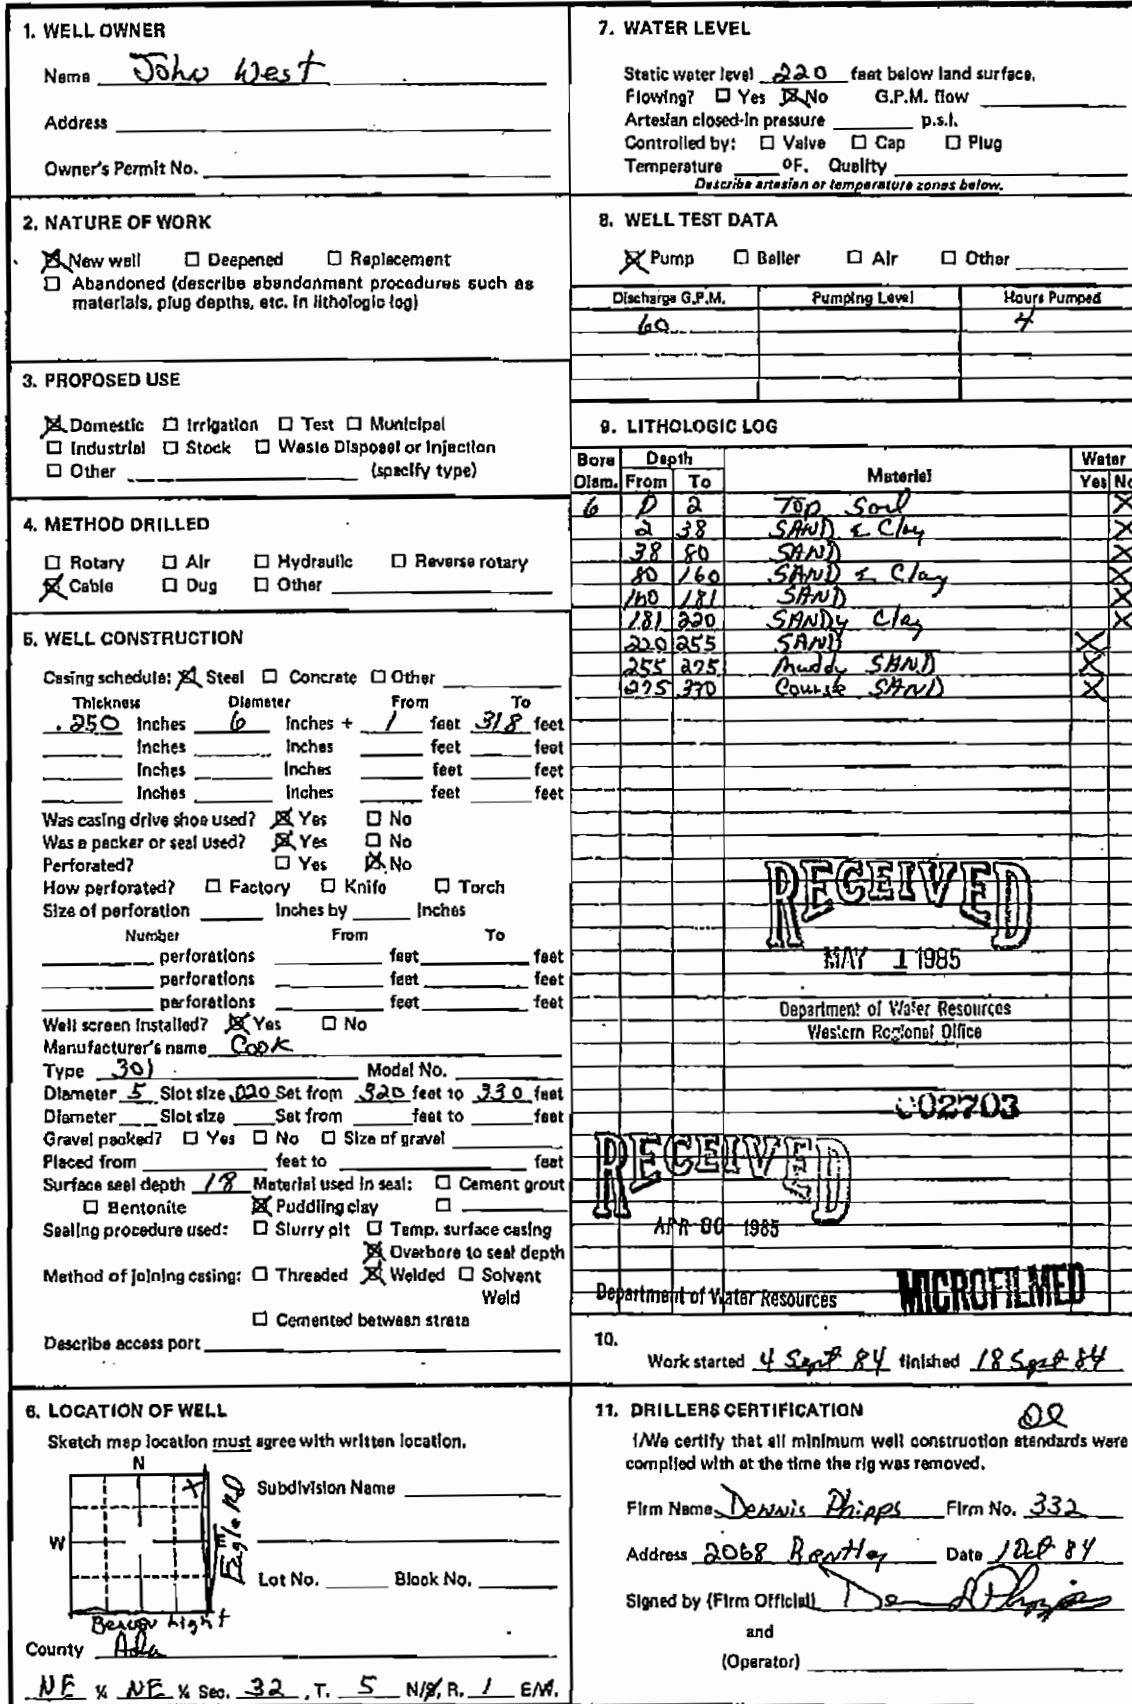 1. WELL OWNER
Name John West
Address
Owner's Permit No.
2. NATURE OF WORK
☒ New well ☐ Deepened ☐ Replacement
☐ Abandoned (describe abandonment procedures such as
materials, plug depths, etc. in lithologic log)
3. PROPOSED USE
☒ Domestic ☐ Irrigation ☐ Test ☐ Municipal
☐ Industrial ☐ Stock ☐ Waste Disposal or Injection
☐ Other (specify type)
4. METHOD DRILLED
☐ Rotary ☐ Air ☐ Hydraulic ☐ Reverse rotary
☒ Cable ☐ Dug ☐ Other
5. WELL CONSTRUCTION
Casing schedule: ☒ Steel ☐ Concrete ☐ Other
Thickness Diameter From To
.250 inches 6 inches + 1 feet 318 feet
inches inches feet feet
inches inches feet feet
inches inches feet feet
Was casing drive shoe used? ☒ Yes ☐ No
Was a packer or seal used? ☒ Yes ☐ No
Perforated? ☐ Yes ☒ No
How perforated? ☐ Factory ☐ Knife ☐ Torch
Size of perforation inches by inches
Number From To
perforations feet feet
perforations feet feet
perforations feet feet
Well screen installed? ☒ Yes ☐ No
Manufacturer's name Cook
Type 301 Model No.
Diameter 5 Slot size .020 Set from 320 feet to 330 feet
Diameter Slot size Set from feet to feet
Gravel packed? ☐ Yes ☐ No ☐ Size of gravel
Placed from feet to feet
Surface seal depth 18 Material used in seal: ☐ Cement grout
☐ Bentonite ☒ Puddling clay ☐
Sealing procedure used: ☐ Slurry pit ☐ Temp. surface casing
☒ Overbore to seal depth
Method of joining casing: ☐ Threaded ☒ Welded ☐ Solvent
Weld
☐ Cemented between strata
Describe access port
6. LOCATION OF WELL
Sketch map location must agree with written location.
N
X
W
E
Eagle RD
Beacon Light
Subdivision Name
Lot No. Block No.
County Ada
NE ¼ NE ¼ Sec. 32, T. 5 N/S, R. 1 E/W.
7. WATER LEVEL
Static water level 220 feet below land surface.
Flowing? ☐ Yes ☒ No G.P.M. flow
Artesian closed-in pressure p.s.i.
Controlled by: ☐ Valve ☐ Cap ☐ Plug
Temperature °F. Quality
Describe artesian or temperature zones below.
8. WELL TEST DATA
☒ Pump ☐ Bailer ☐ Air ☐ Other
Discharge G.P.M. Pumping Level Hours Pumped
60 4
9. LITHOLOGIC LOG
Bore Depth Material Water
Diam. From To Yes No
6 0 2 Top Soil X
2 38 SAND & Clay X
38 80 SAND X
80 160 SAND & Clay X
160 181 SAND X
181 220 SANDy Clay X
220 255 SAND X
255 275 Muddy SAND X
275 330 Course SAND X
RECEIVED
MAY 1 1985
Department of Water Resources
Western Regional Office
002703
RECEIVED
APR 30 1985
Department of Water Resources
MICROFILMED
10.
Work started 4 Sept 84 finished 18 Sept 84
11. DRILLERS CERTIFICATION
I/We certify that all minimum well construction standards were
complied with at the time the rig was removed.
Firm Name Dennis Phipps Firm No. 332
Address 2068 Bentley Date 1 Oct 84
Signed by (Firm Official)
and
(Operator)